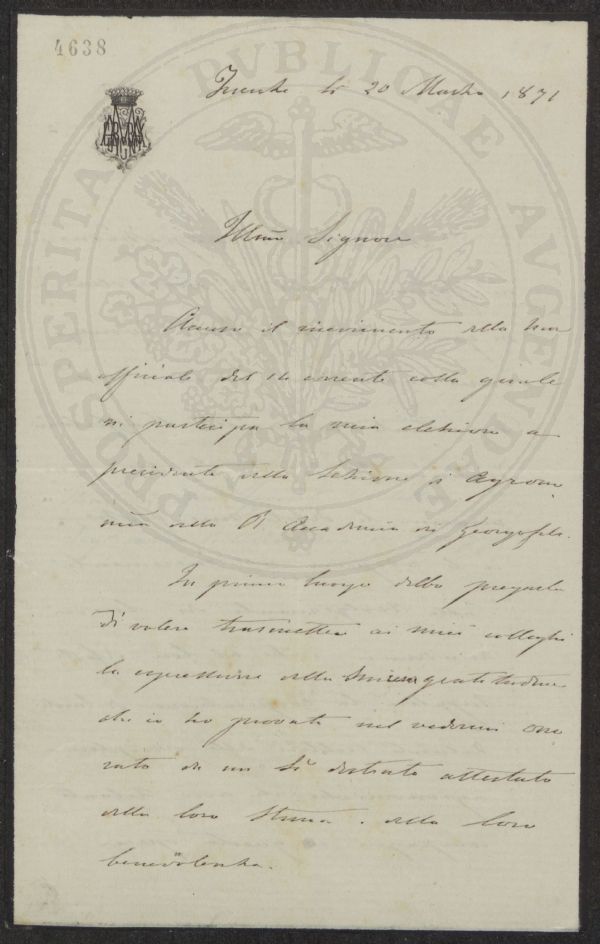 4638
PROSPERITATI PVBLICAE AVGENDAE
Firenze li 20 Marzo 1871
Illmo Signore
Accuso il ricevimento della sua
officiale del 14 corrente colla quale
mi partecipa la mia elezione a
presidente della Sezione di Agrono
mia della R. Accademia dei Georgofili.
In primo luogo debbo pregarla
di volere trasmettere ai miei colleghi
la espressione della sincera gratitudine
che io ho provata nel vedermi ono
rato da un sì distinto attestato
della loro stima e della loro
benevolenza.